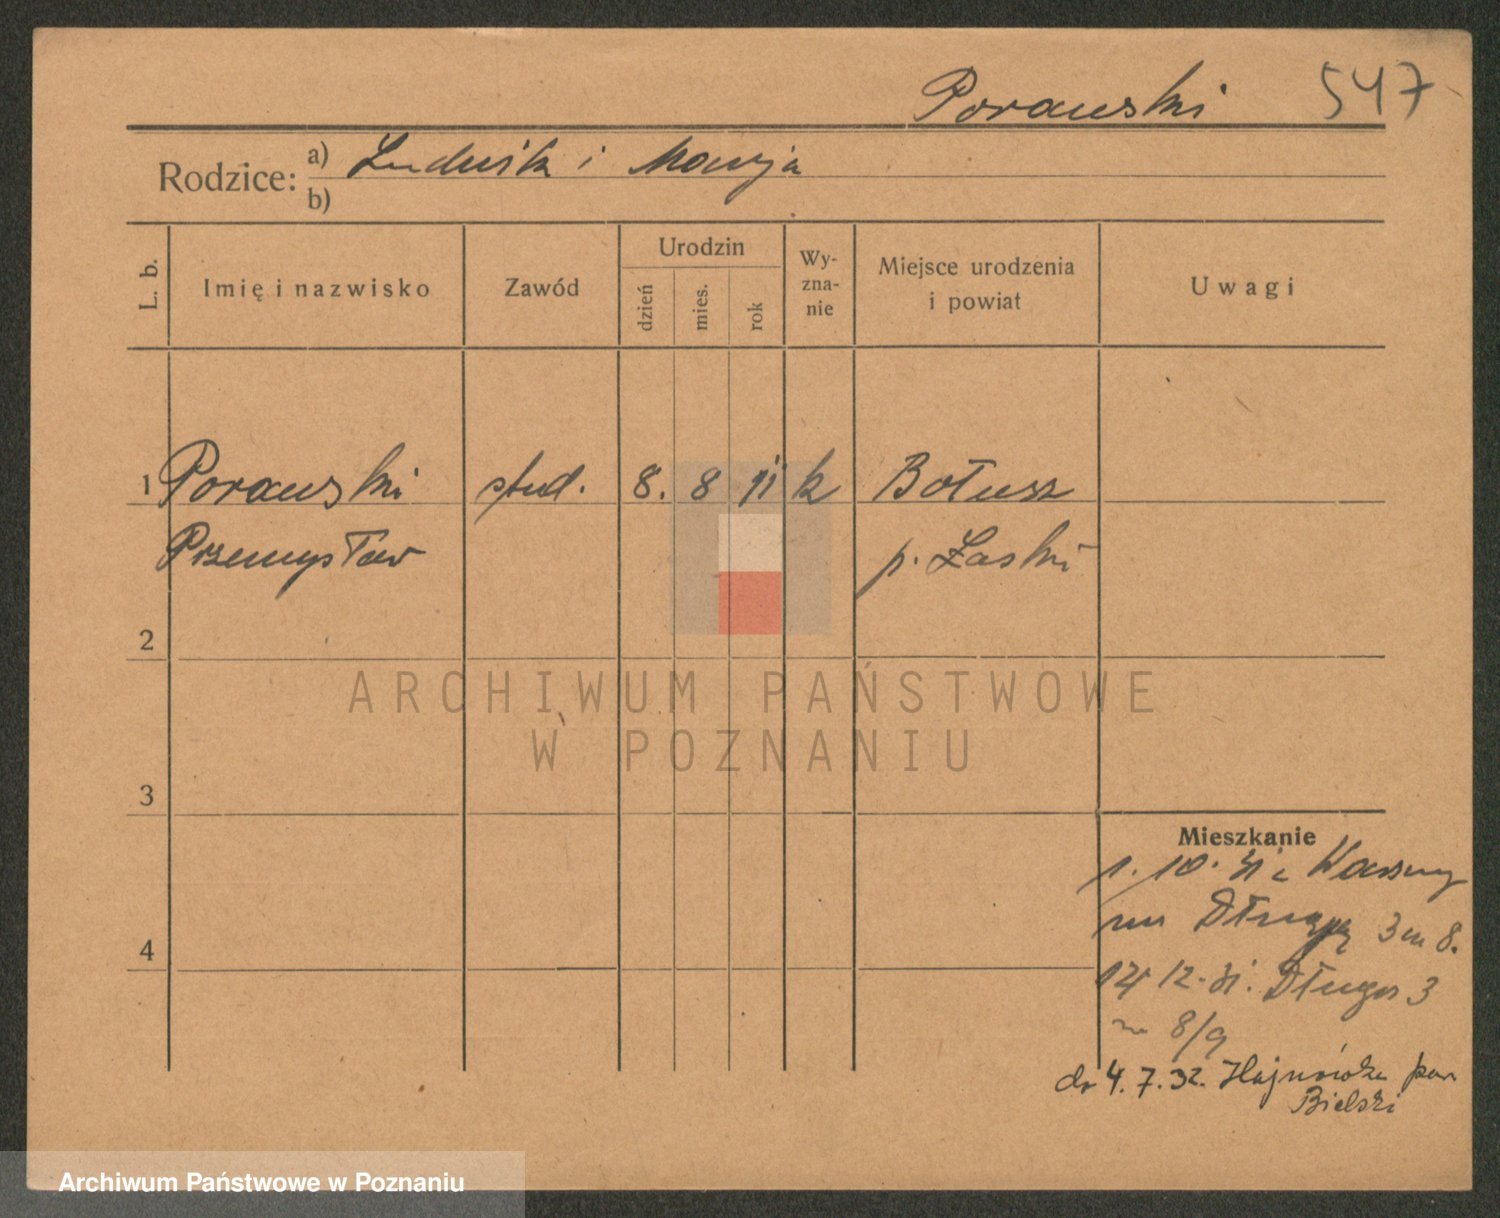 Porawski 547
Rodzice: a) Ludwik i Maryja
b)
L. b. Imię i nazwisko Zawód Urodzin dzień mies. rok Wy-zna-nie Miejsce urodzenia i powiat Uwagi
1 Porawski stud. 8. 8 11 k Bołusz
Przemysław p. Łaski
2
3
4
Mieszkanie
1. 10. 31 z Warszawy
na Długą 3 m 8.
12. 31. Długa 3
m 8/9
do 4. 7. 32. Hajnówka pow
Bielski
ARCHIWUM PAŃSTWOWE
W POZNANIU
Archiwum Państwowe w Poznaniu